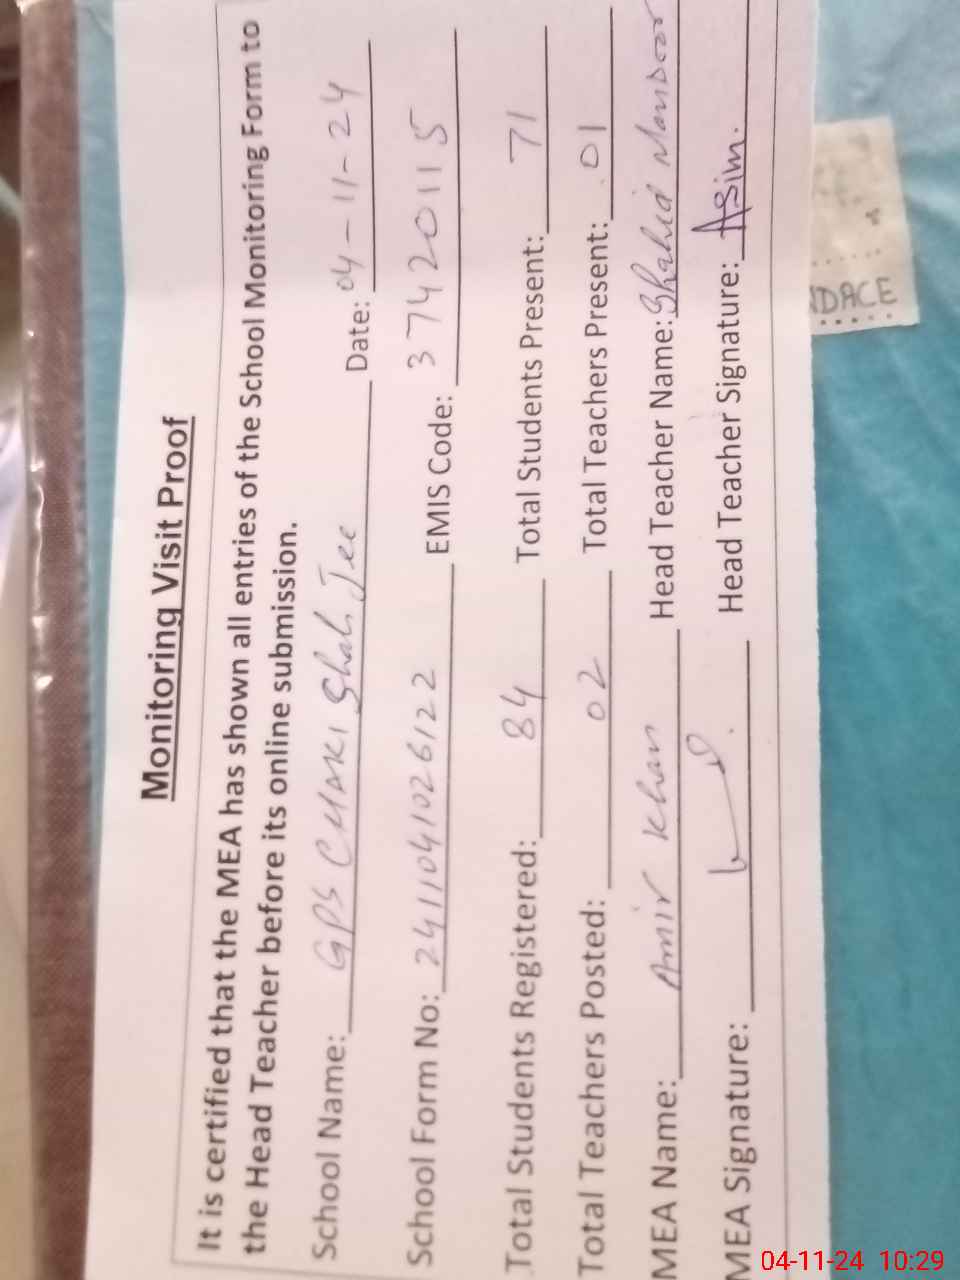 Monitoring Visit Proof
It is certified that the MEA has shown all entries of the School Monitoring Form to
the Head Teacher before its online submission.
School Name: GPS CHAKI Shah Jee Date: 04-11-24
School Form No: 2411041026122 EMIS Code: 37420115
Total Students Registered: 84 Total Students Present: 71
Total Teachers Posted: 02 Total Teachers Present: 01
MEA Name: Amir Khan Head Teacher Name: Shahid Manzoor
MEA Signature: Head Teacher Signature: Asim.
DACE
04-11-24 10:29